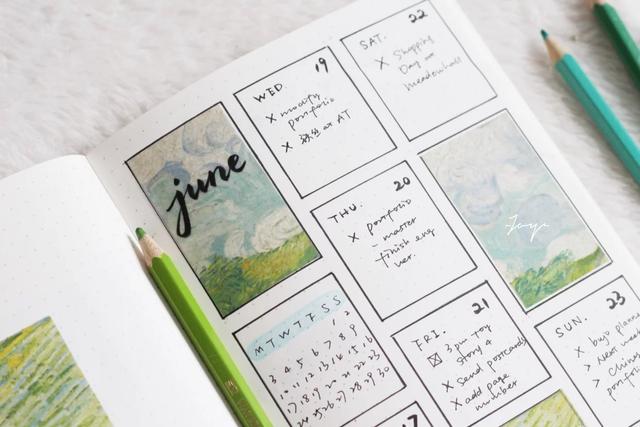 june
M T W T F S S
1 2
3 4 5 6 7 8 9
10 11 12 13 14 15 16
17 18 19 20 21 22 23
24 25 26 27 28 29 30
17
WED. 19
X modify
portfolio
X at AT
THU. 20
X portfolio
- master
finish eng
ver.
FRI. 21
3pm Toy
Story 4
X send postcards
X add page
number
SAT. 22
X Shopping
Day
meadowhall
Joyc
SUN. 23
X bujo plann
> Next wee
> Chine
portfo